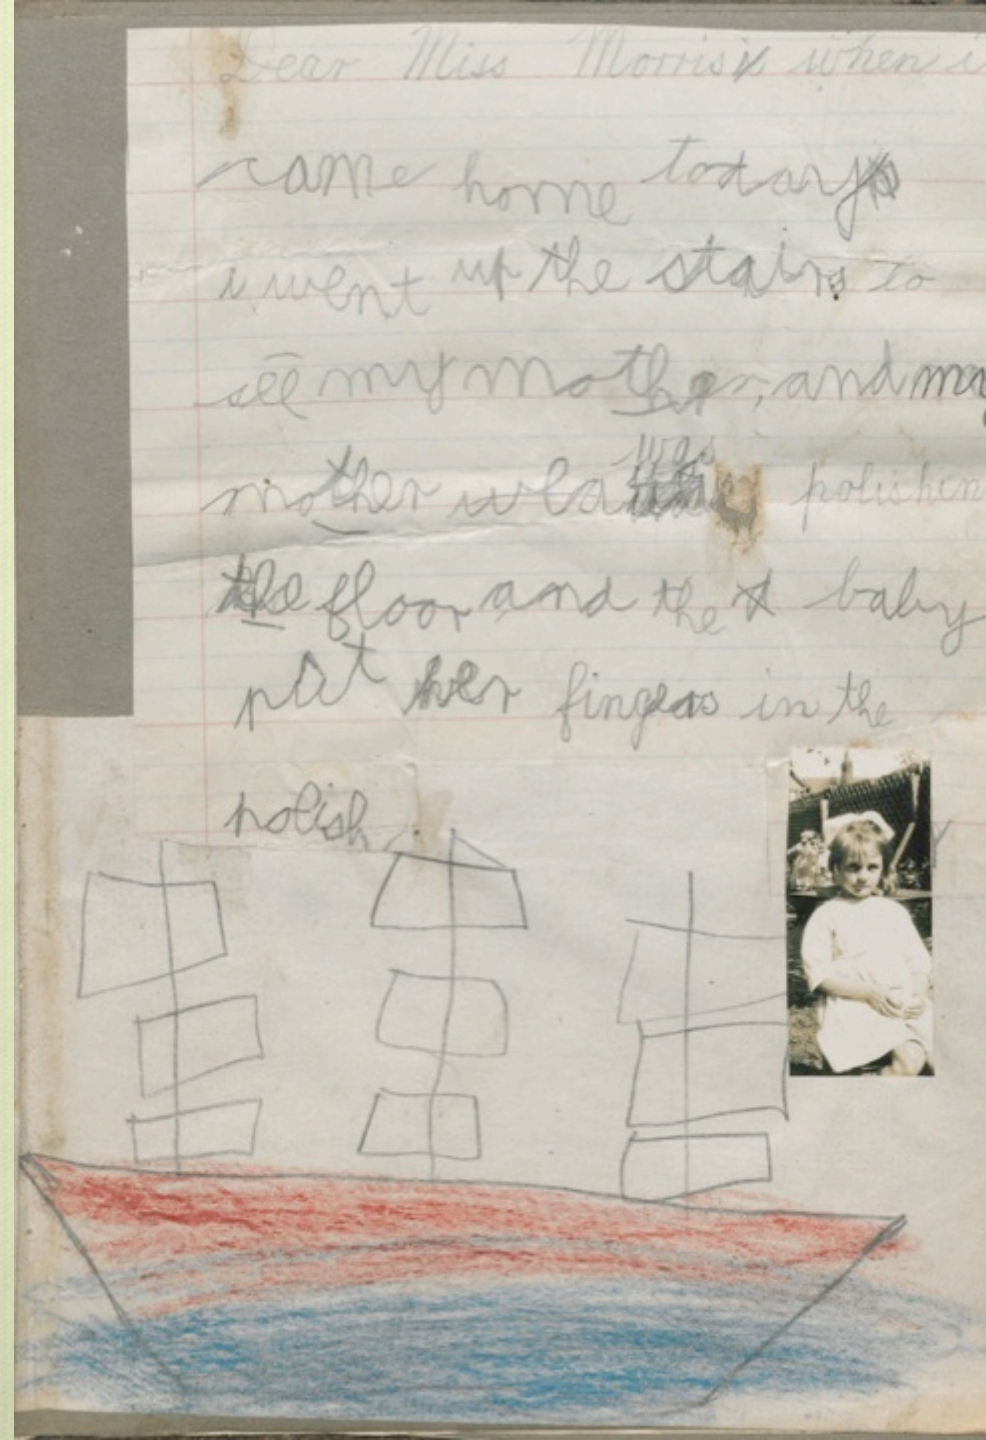 Dear Miss Morris when i
came home today
i went up the stairs to
see my mother, and my
mother was polishen
the floor and the baby
put her fingers in the
polish.